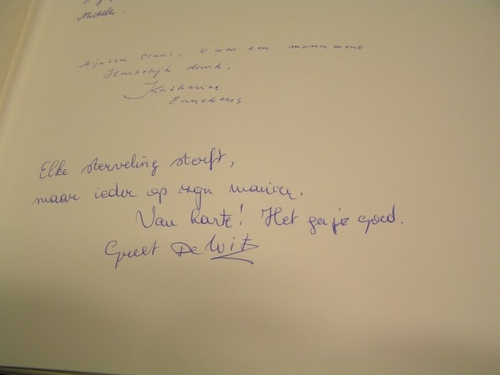 Michelle.
Mijnheer Claus, U was een monument
Hartelijk dank.
Katharine
Ennekens
Elke sterveling sterft,
maar ieder op zijn manier.
Van harte! Het ga je goed.
Greet De Wit